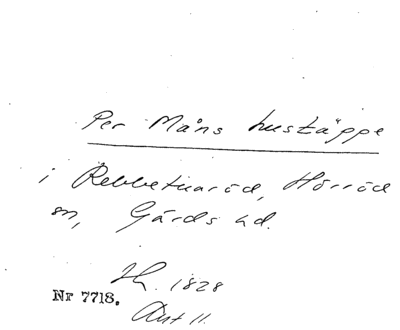 Per Måns hustäppe
i Rebbetuaröd, Hörröd
sn, Gärds hd.
Hk. 1828
Nr 7718.
Ant 11.